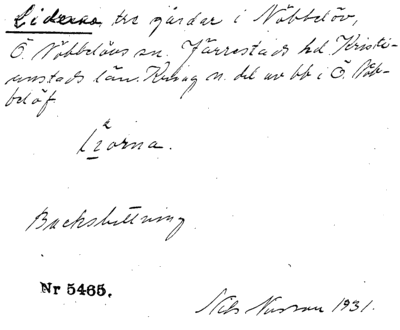 Liderna tre gårdar i Nöbbelöv,
Ö. Nöbbelövs sn. Järrestads hd. Kristi-
anstads län. n. del av bb i Ö. Nöb-
belöf
Backsluttning
Nr 5465.
Nils 1931.